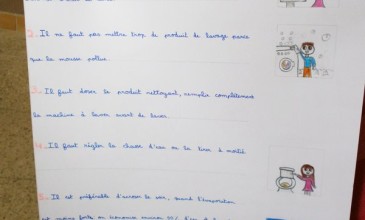 2. Il ne faut pas mettre trop de produit de lavage parce
que la mousse pollue.
3. Il faut doser le produit nettoyant, remplir complètement
la machine à laver avant de laver.
4. Il faut régler la chasse d'eau ou la tirer à moitié
5. Il est préférable d'arroser le soir, quand l'évaporation
est moins forte, on économise environ